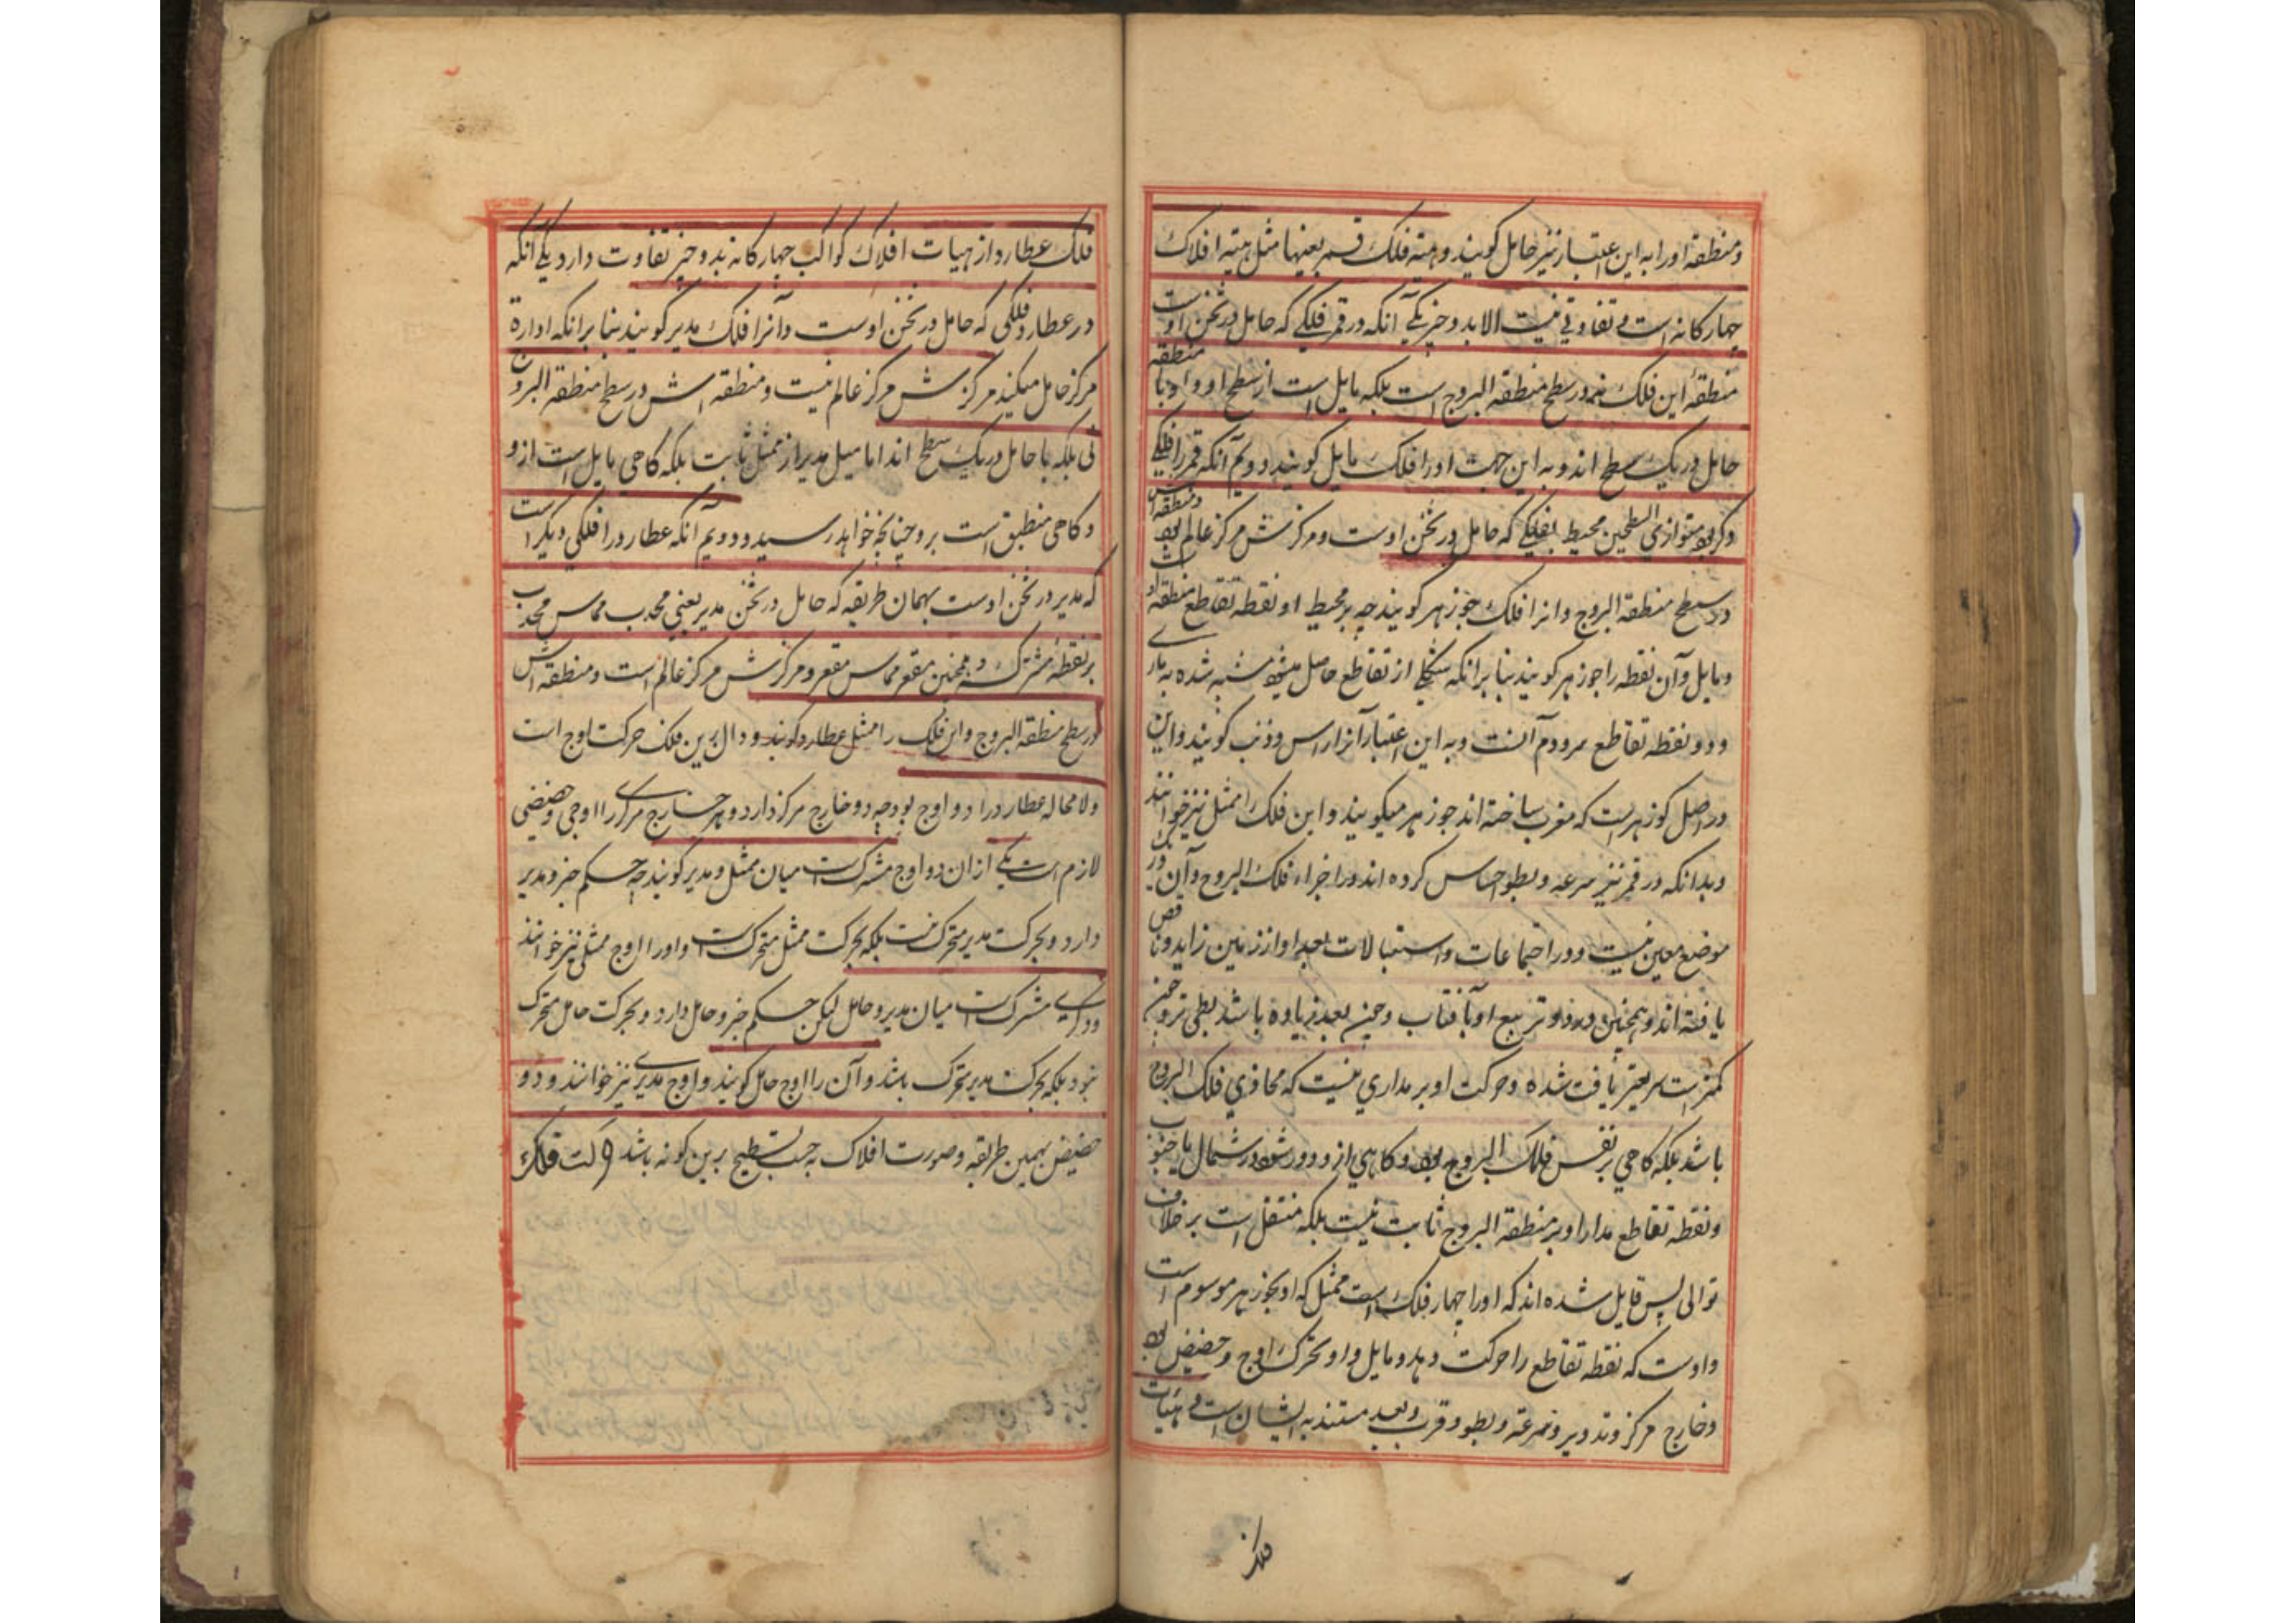 ومنطقه اورا به این اعتبار نیز حامل کویند وهیئه فلک قمر بعینها مثل هیئه افلاک
چهارکانه است و تفاوتی نیست الا بدو چیز یکی آنکه در قمر فلکی که حامل در ثخن اوست
منطقهٔ این فلک نه در سطح منطقة البروج است بلکه مایل است از سطح او واو با منطقه
حامل در یک سطح اند و به این جهت اورا فلک مایل کویند دویم آنکه قمر را فلکی
دیگر بود متوازی السطحین محیط بفلکی که حامل در ثخن اوست ومرکزش مرکز عالم بود ومنطقه اش
در سطح منطقة البروج وانرا فلک جوزهر کویند چه بر محیط او نقطه تقاطع منطقه او
ومایل وآن نقطه را جوزهر کویند بنا برانکه شکلی از تقاطع حاصل میشود مشبه شده به ماری
ودو نقطه تقاطع سر ودم آنست وبه این اعتبار آنرا راس وذنب کویند واین
در اصل کوزهر است که معرب ساخته اند جوزهر میکویند واین فلک را ممثل نیز خوانند
وبدانکه در قمر نیز سرعه وبطو احساس کرده اند در اجزاء فلک البروج وآن در یک
موضع معین نیست ودر اجتماعات واستقبالات بعد او از زمین زاید وناقص
یافته اند وهمچنین در دو تربیع او با آفتاب وحین بعد زیاده باشد بطی تر وحین
کمتر است سریعتر یافت شده وحرکت او بر مداری نیست که محاذی فلک البروج
باشد بلکه کاهی بر نفس فلک البروج بود وکاهی ازو دور شود در شمال یا جنوب
ونقطه تقاطع مدار او بر منطقة البروج ثابت نیست بلکه منتقل است بر خلاف
توالی پس قایل شده اند که اورا چهار فلک است ممثل که او بجوزهر موسوم است
واوست که نقطه تقاطع را حرکت دهد ومایل واو محرک اوج وحضیض بود
وخارج مرکز وتدویر وسرعة وبطو وقرب وبعد مستند به ایشان است و هیئات
فلک
فلک عطارد از هیات افلاک کواکب چهارکانه بدو چیز تفاوت دارد یکی انکه
در عطارد فلکی که حامل در ثخن اوست وآنرا فلک مدیر کویند بنا برانکه اداره
مرکز حامل میکند مرکزش مرکز عالم نیست ومنطقه اش در سطح منطقة البروج
نی بلکه با حامل در یک سطح اند اما میل مدیر از ممثل ثابت بلکه کاهی مایل است ازو
وکاهی منطبق است برو چنانچه خواهد رسید ودویم آنکه عطارد را فلکی دیکر است
که مدیر در ثخن اوست بهمان طریقه که حامل در ثخن مدیر یعنی محدب مماس محدب
بر نقطهٔ مشترک وهمچنین مقعر مماس مقعر ومرکزش مرکز عالم است ومنطقه اش
در سطح منطقة البروج واین فلک را ممثل عطارد کویند ودال برین فلک حرکت اوج است
ولا محاله عطارد را دو اوج بود چه دو خارج مرکز دارد وهر خارج مرکزی را اوجی وحضیضی
لازم است یکی ازان دو اوج مشترک است میان ممثل ومدیر کویند چه حکم جزو مدیر
دارد وبحرکت مدیر متحرک نیست بلکه بحرکت ممثل متحرک است واورا اوج ممثلی نیز خوانند
ودیکری مشترک است میان مدیر وحامل لیکن حکم جزو حامل دارد وبحرکت حامل متحرک
نبود بلکه بحرکت مدیر متحرک باشد وآن را اوج حامل کویند واوج مدیری نیز خوانند ودو
حضیض بهمین طریقه وصورت افلاک به حسب تسطیح برین کونه باشد